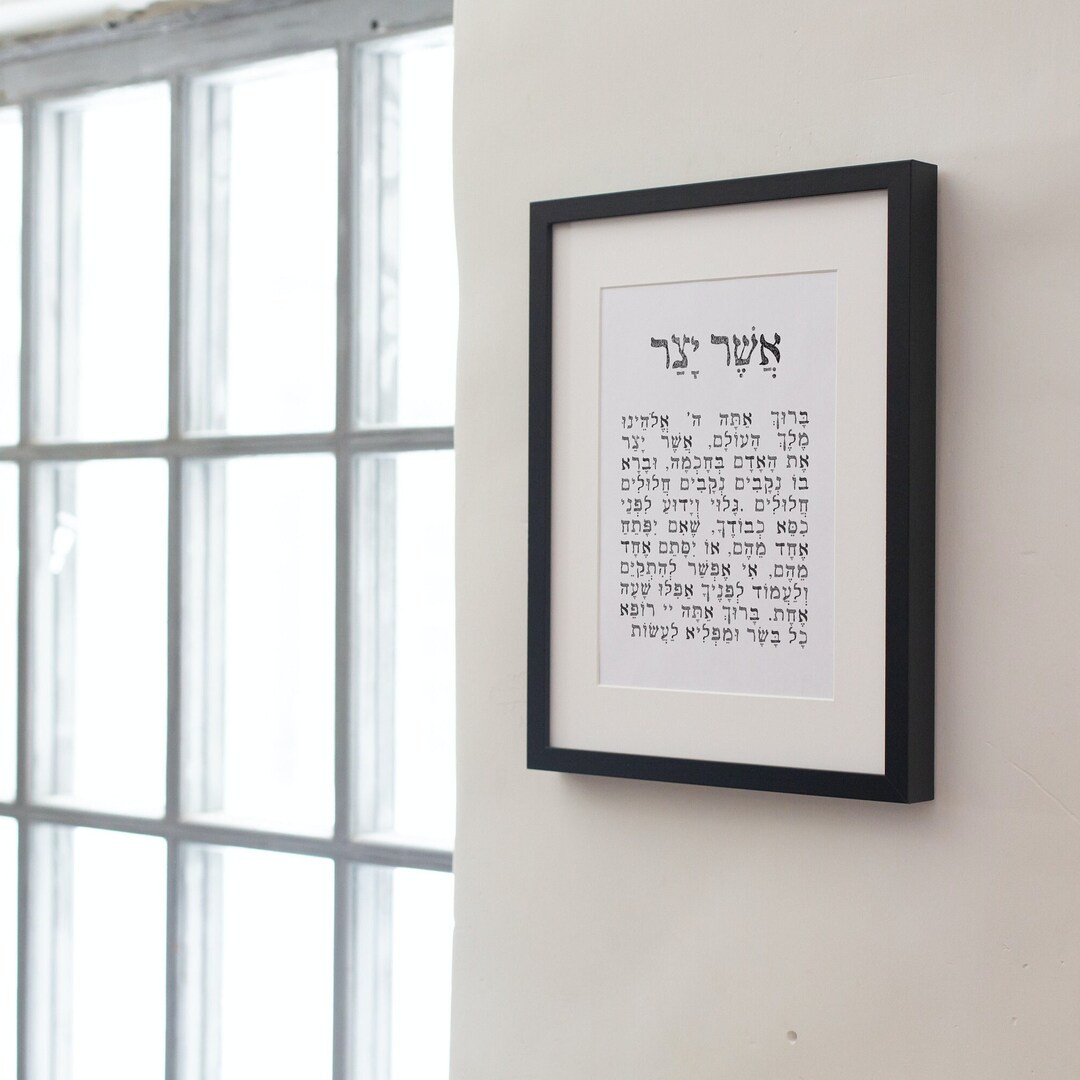 אֲשֶׁר יָצַר
בָּרוּךְ אַתָּה ה' אֱלֹהֵינוּ
מֶלֶךְ הָעוֹלָם, אֲשֶׁר יָצַר
אֶת הָאָדָם בְּחָכְמָה, וּבָרָא
בוֹ נְקָבִים נְקָבִים חֲלוּלִים
חֲלוּלִים .גָּלוּי וְיָדוּעַ לִפְנֵי
כִסֵּא כְבוֹדֶךָ, שֶׁאִם יִפָּתֵחַ
אֶחָד מֵהֶם, אוֹ יִסָּתֵם אֶחָד
מֵהֶם, אִי אֶפְשַׁר לְהִתְקַיֵּם
וְלַעֲמוֹד לְפָנֶיךָ אֲפִלּוּ שָׁעָה
אֶחָת. בָּרוּךְ אַתָּה יי רוֹפֵא
כָל בָּשָׂר וּמַפְלִיא לַעֲשׂוֹת